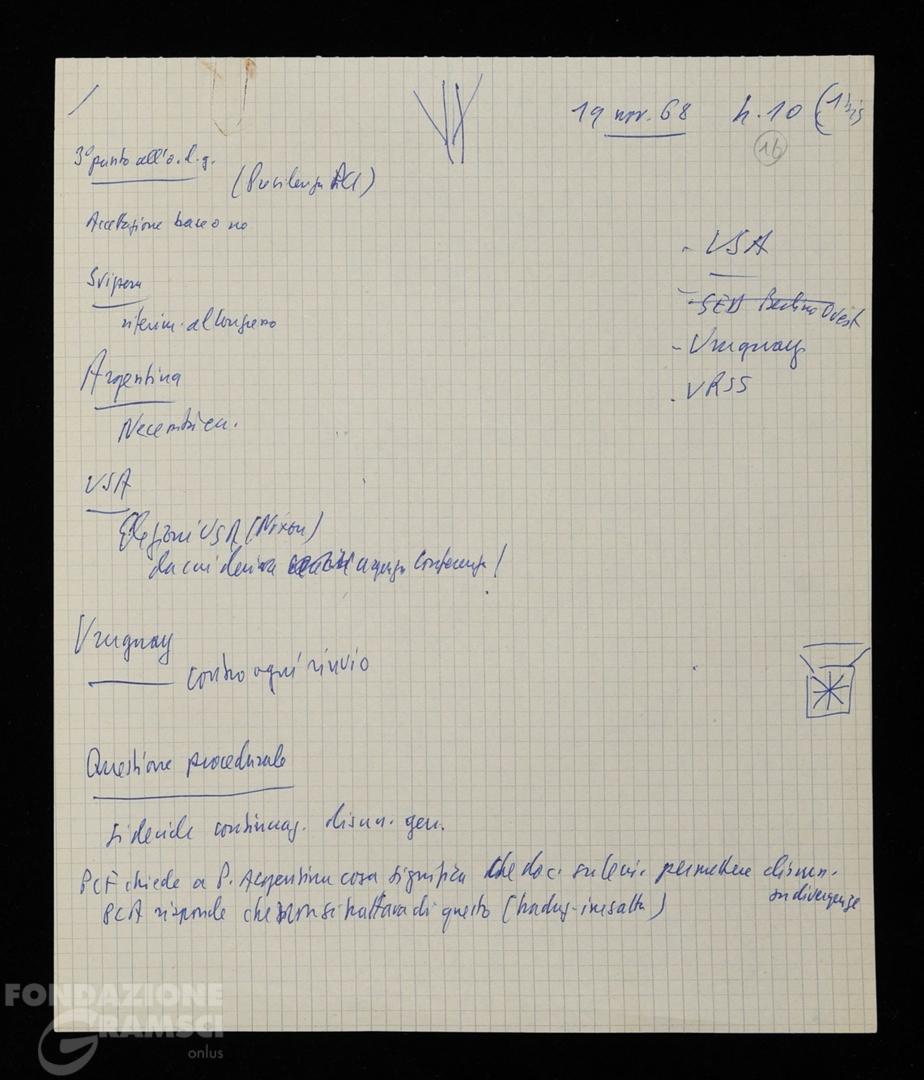 19 nov. 68 h. 10 (1 bis
16
3° punto all'o.d.g.
(Presidenza
Accettazione base o no
- USA
Svizzera
- SED Berlino Ovest
riferim. al Congresso
- Uruguay
- URSS
Argentina
USA
Elezioni USA (Nixon)
da cui deriva urgenza Conferenza!
Uruguay
contro ogni rinvio
Questione procedurale
si decide continuaz. discuss. gen.
PCF chiede a P. Argentina cosa significa che doc. permettere discuss.
su divergenze
PCA risponde che non si trattava di questo (traduz. inesatta)
FONDAZIONE
GRAMSCI
onlus